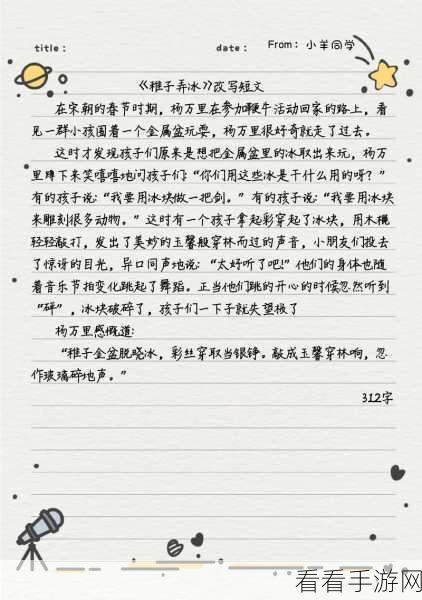 title：
date：
From：小羊同学
《稚子弄冰》改写短文
在宋朝的春节时期，杨万里在参加鞭牛活动回家的路上，看
见一群小孩围着一个金属盆玩耍，杨万里很好奇就走了过去。
这时才发现孩子们原来是想把金属盆里的冰取出来玩，杨万
里蹲下来笑嘻嘻地问孩子们：“你们用这些冰是干什么用的呀？”
有的孩子说：“我要用冰块做一把剑。”有的孩子说：“我要用冰块
来雕刻很多动物。”这时有一个孩子拿起彩穿起了冰块，用木槌
轻轻敲打，发出了美妙的玉馨般穿林而过的声音，小朋友们投去
了惊讶的目光，异口同声地说：“太好听了吧！”他们的身体也随
着音乐节拍变化跳起了舞蹈。正当他们跳的开心的时候忽然听到
“砰”，冰块破碎了，孩子们一下子就失望极了
杨万里感慨道：
“稚子金盆脱晓冰，彩丝穿取当银铮。敲成玉馨穿林响，忽
作玻璃碎地声。”
312字
看看手游网